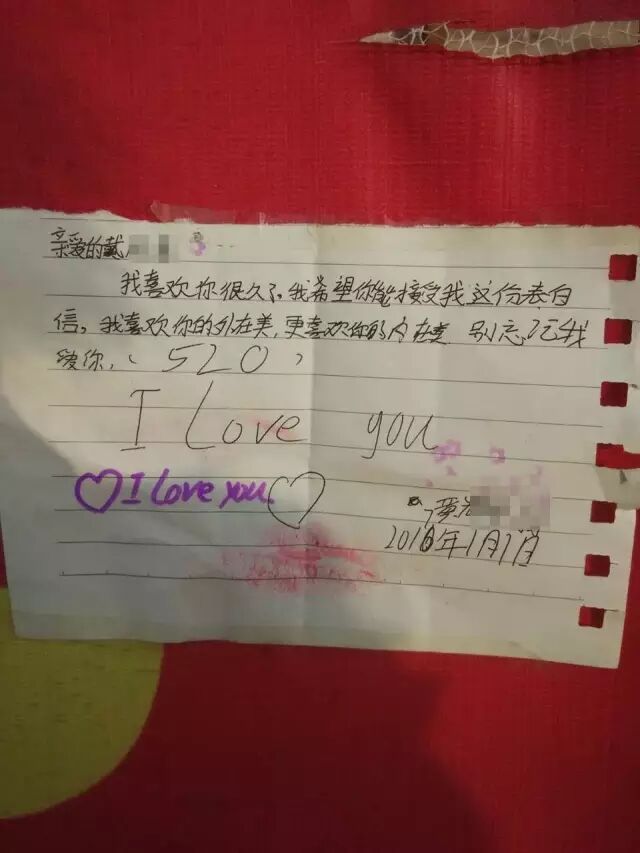 亲爱的戴
我喜欢你很久了,我希望你能接受我这份表白
信,我喜欢你的外在美,更喜欢你的内在美 别忘了我
爱你,(520)
I Love you
I Love you.
2016年1月1日